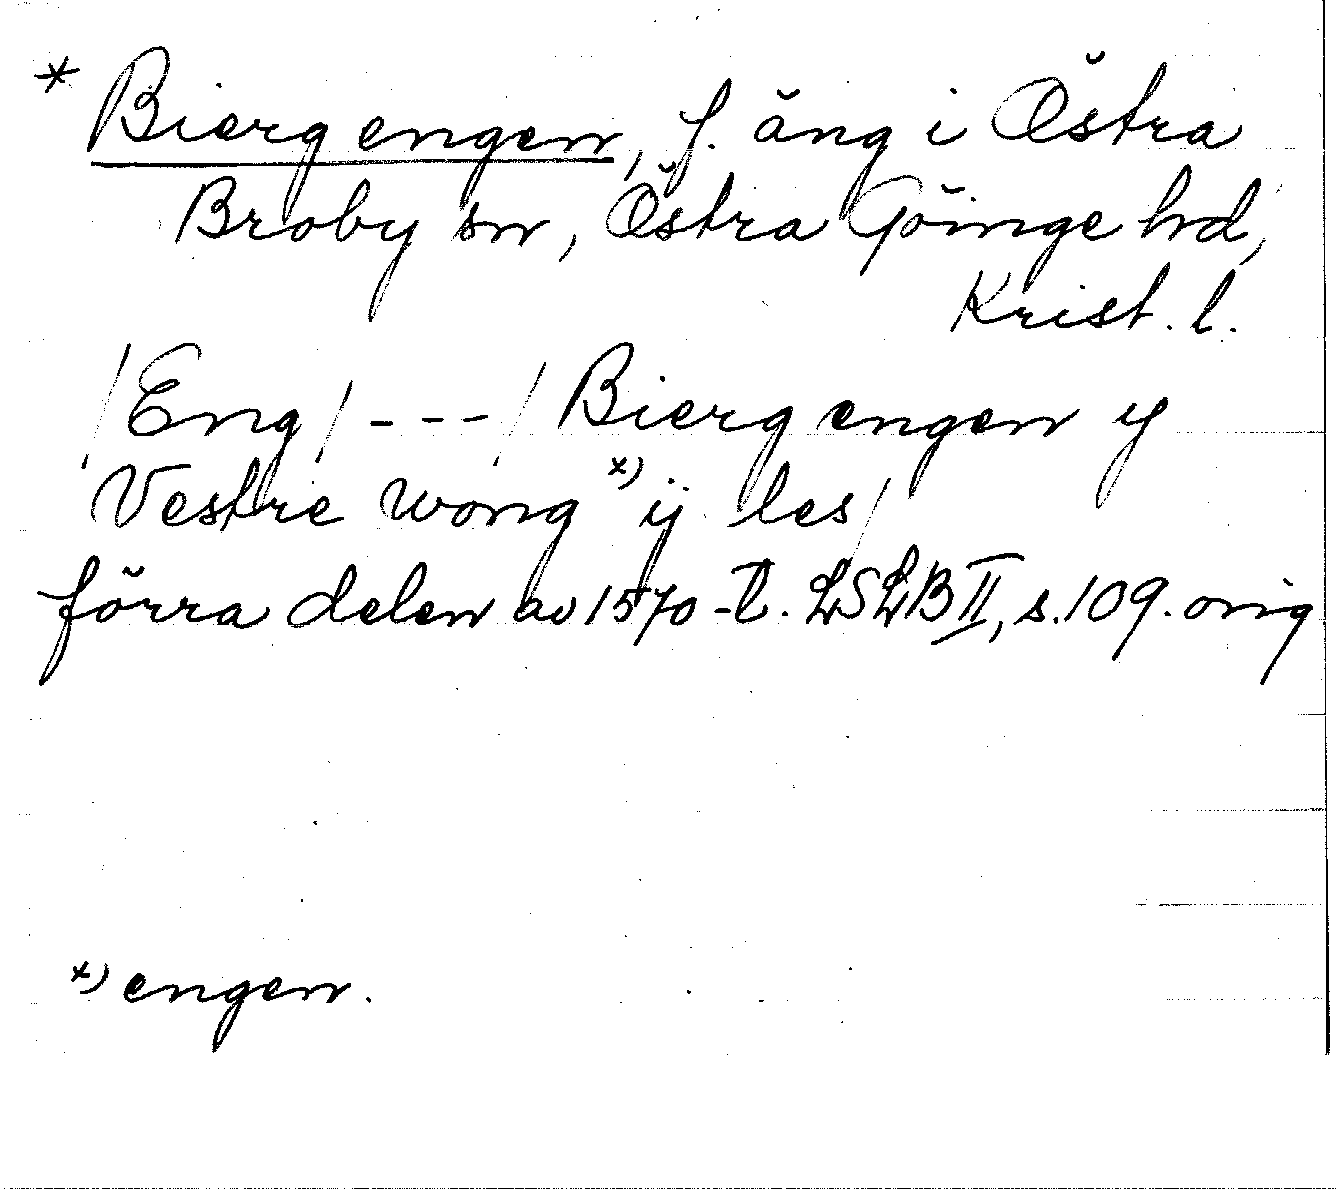 * Bierg engen, f. äng i Östra
Broby sn, Östra Göinge hd,
Krist. l.
/Eng/ --- / Bierg engen y
Vestre wong x) ÿ les/
förra delen av 1570-t. LSLB II, s. 109. orig
x) engen.